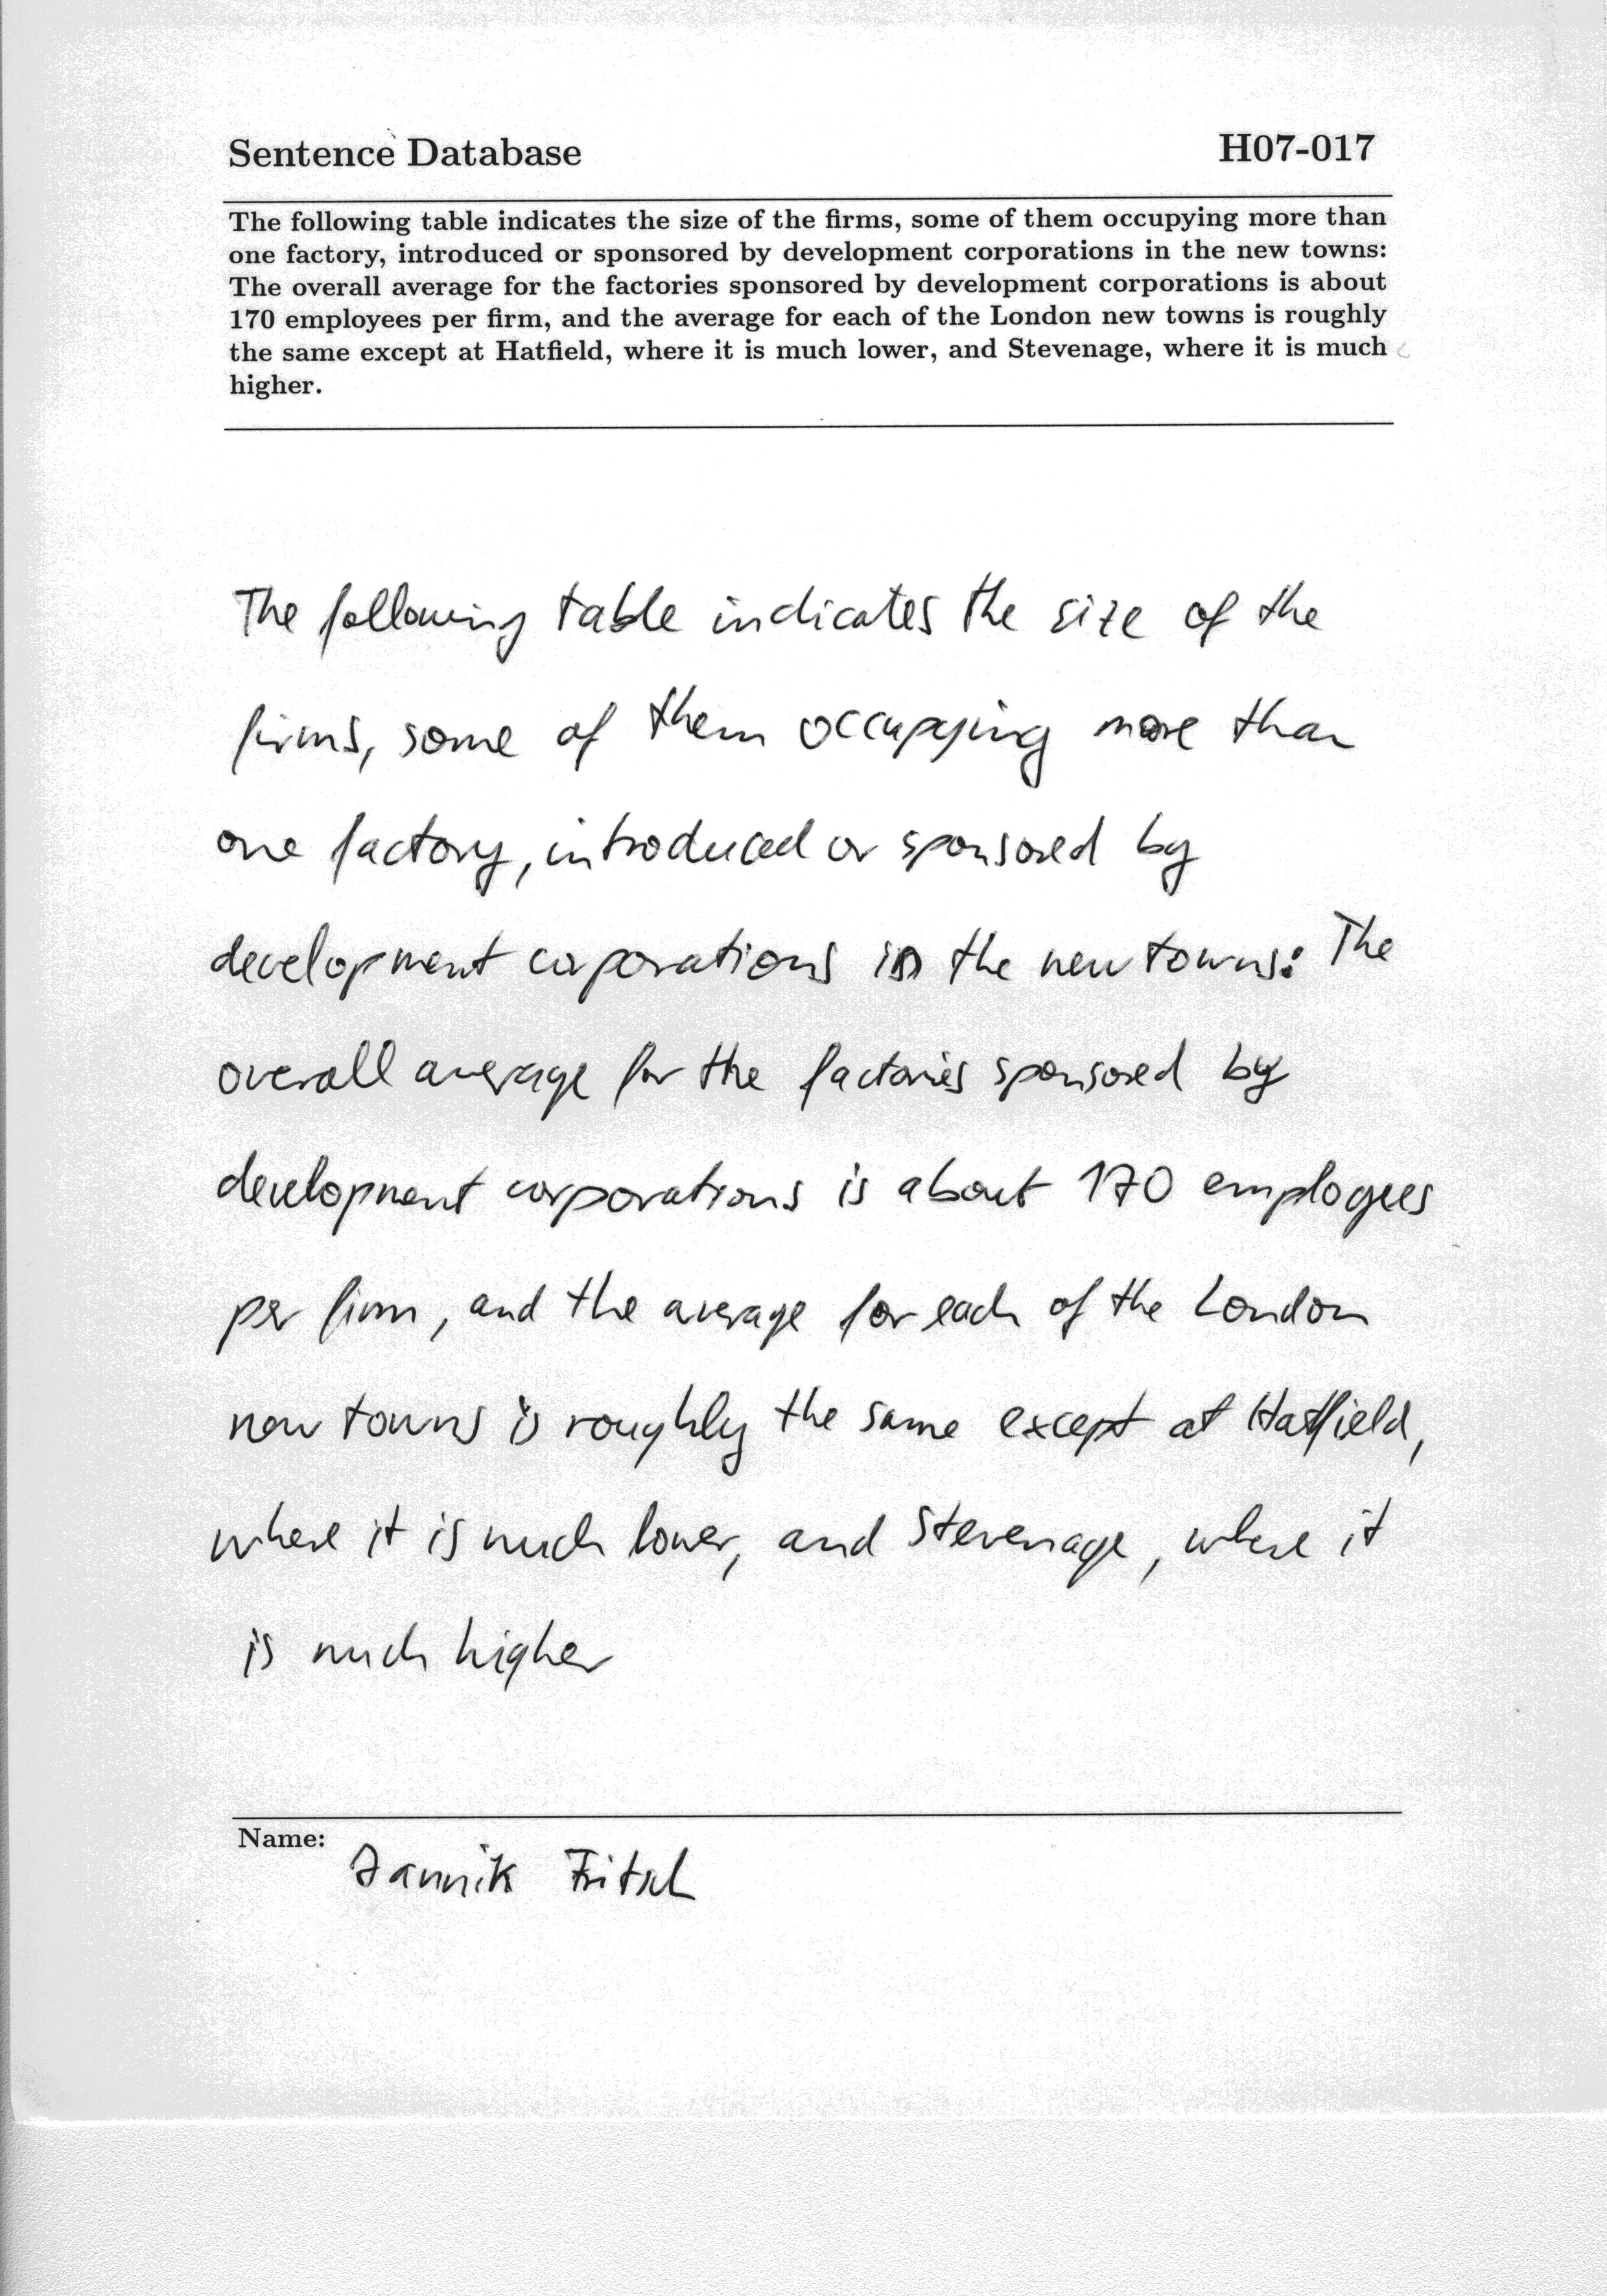 Sentence Database
H07-017
The following table indicates the size of the firms, some of them occupying more than
one factory, introduced or sponsored by development corporations in the new towns:
The overall average for the factories sponsored by development corporations is about
170 employees per firm, and the average for each of the London new towns is roughly
the same except at Hatfield, where it is much lower, and Stevenage, where it is much
higher.
The following table indicates the size of the
firms, some of them occupying more than
one factory, introduced or sponsored by
development corporations in the new towns: The
overall average for the factories sponsored by
development corporations is about 170 employees
per firm, and the average for each of the London
new towns is roughly the same except at Hatfield,
where it is much lower, and Stevenage, where it
is much higher
Name:
Jannik Fritsch